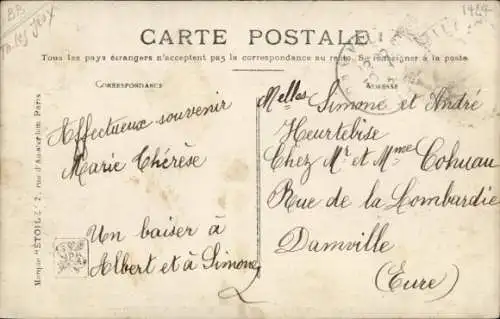 BB
CARTE POSTALE
Tous les pays étrangers n'acceptent pas la correspondance au recto. Se renseigner à la poste
CORRESPONDANCE
ADRESSE
Affectueux souvenir
Marie Thérèse
Un baiser à
Albert et à Simone
Melles Simone et André
Heurtebise
Chez Mr et Mme Cohuau
Rue de la Lombardie
Damville
(Eure)
Marque "ÉTOILE" rue d'Amsterdam Paris